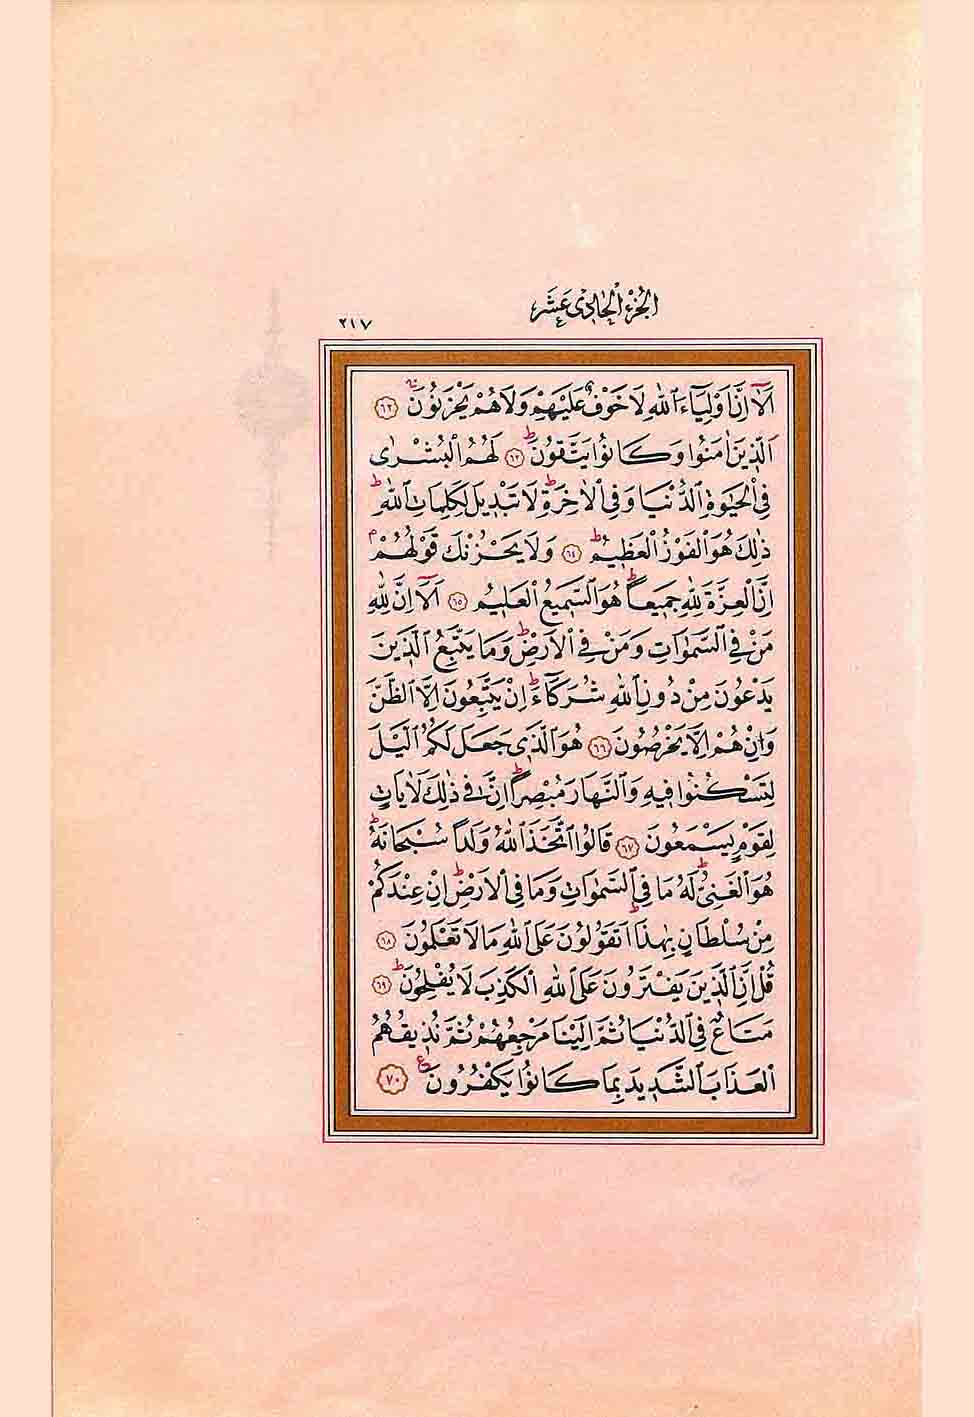 اَلْجُزْءُ الْحَادِى عَشَرَ
٢١٧
اَلَٓا اِنَّ اَوْلِيَٓاءَ اللّٰهِ لَا خَوْفٌ عَلَيْهِمْ وَلَا هُمْ يَحْزَنُونَۚ ﴿٦٢﴾
اَلَّذ۪ينَ اٰمَنُوا وَكَانُوا يَتَّقُونَۜ ﴿٦٣﴾ لَهُمُ الْبُشْرٰى
فِي الْحَيٰوةِ الدُّنْيَا وَفِي الْاٰخِرَةِۜ لَا تَبْد۪يلَ لِكَلِمَاتِ اللّٰهِۜ
ذٰلِكَ هُوَ الْفَوْزُ الْعَظ۪يمُۜ ﴿٦٤﴾ وَلَا يَحْزُنْكَ قَوْلُهُمْۢ
اِنَّ الْعِزَّةَ لِلّٰهِ جَم۪يعاًۜ هُوَ السَّم۪يعُ الْعَل۪يمُ ﴿٦٥﴾ اَلَٓا اِنَّ لِلّٰهِ
مَنْ فِي السَّمٰوَاتِ وَمَنْ فِي الْاَرْضِۜ وَمَا يَتَّبِعُ الَّذ۪ينَ
يَدْعُونَ مِنْ دُونِ اللّٰهِ شُرَكَٓاءَۜ اِنْ يَتَّبِعُونَ اِلَّا الظَّنَّ
وَاِنْ هُمْ اِلَّا يَخْرُصُونَ ﴿٦٦﴾ هُوَ الَّذ۪ي جَعَلَ لَكُمُ الَّيْلَ
لِتَسْكُنُوا ف۪يهِ وَالنَّهَارَ مُبْصِراًۜ اِنَّ ف۪ي ذٰلِكَ لَاٰيَاتٍ
لِقَوْمٍ يَسْمَعُونَ ﴿٦٧﴾ قَالُوا اتَّخَذَ اللّٰهُ وَلَداً سُبْحَانَهُۜ
هُوَ الْغَنِيُّۜ لَهُ مَا فِي السَّمٰوَاتِ وَمَا فِي الْاَرْضِۜ اِنْ عِنْدَكُمْ
مِنْ سُلْطَانٍ بِهٰذَاۜ اَتَقُولُونَ عَلَى اللّٰهِ مَا لَا تَعْلَمُونَ ﴿٦٨﴾
قُلْ اِنَّ الَّذ۪ينَ يَفْتَرُونَ عَلَى اللّٰهِ الْكَذِبَ لَا يُفْلِحُونَۜ ﴿٦٩﴾
مَتَاعٌ فِي الدُّنْيَا ثُمَّ اِلَيْنَا مَرْجِعُهُمْ ثُمَّ نُذ۪يقُهُمُ
الْعَذَابَ الشَّد۪يدَ بِمَا كَانُوا يَكْفُرُونَ۟ ﴿٧٠﴾